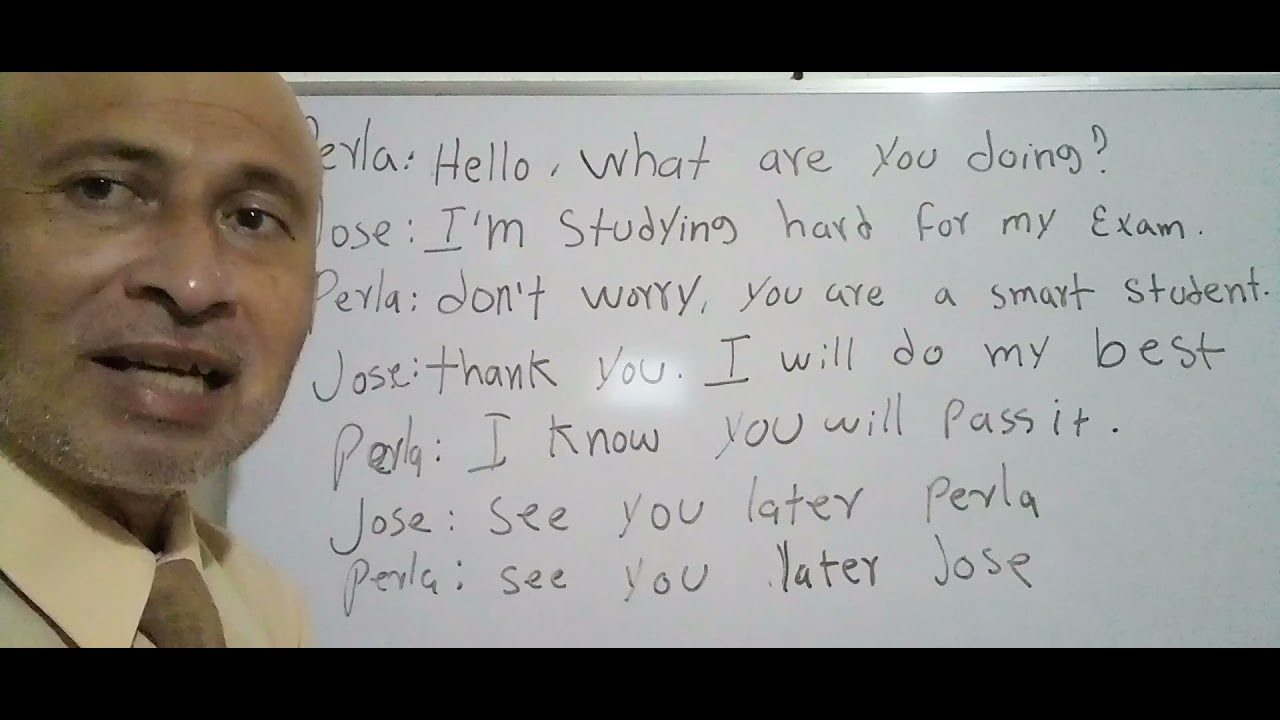 Perla: Hello, what are you doing?
Jose: I'm studying hard for my Exam.
Perla: don't worry, you are a smart student.
Jose: thank you. I will do my best
Perla: I know you will pass it.
Jose: see you later perla
Perla: see you later Jose